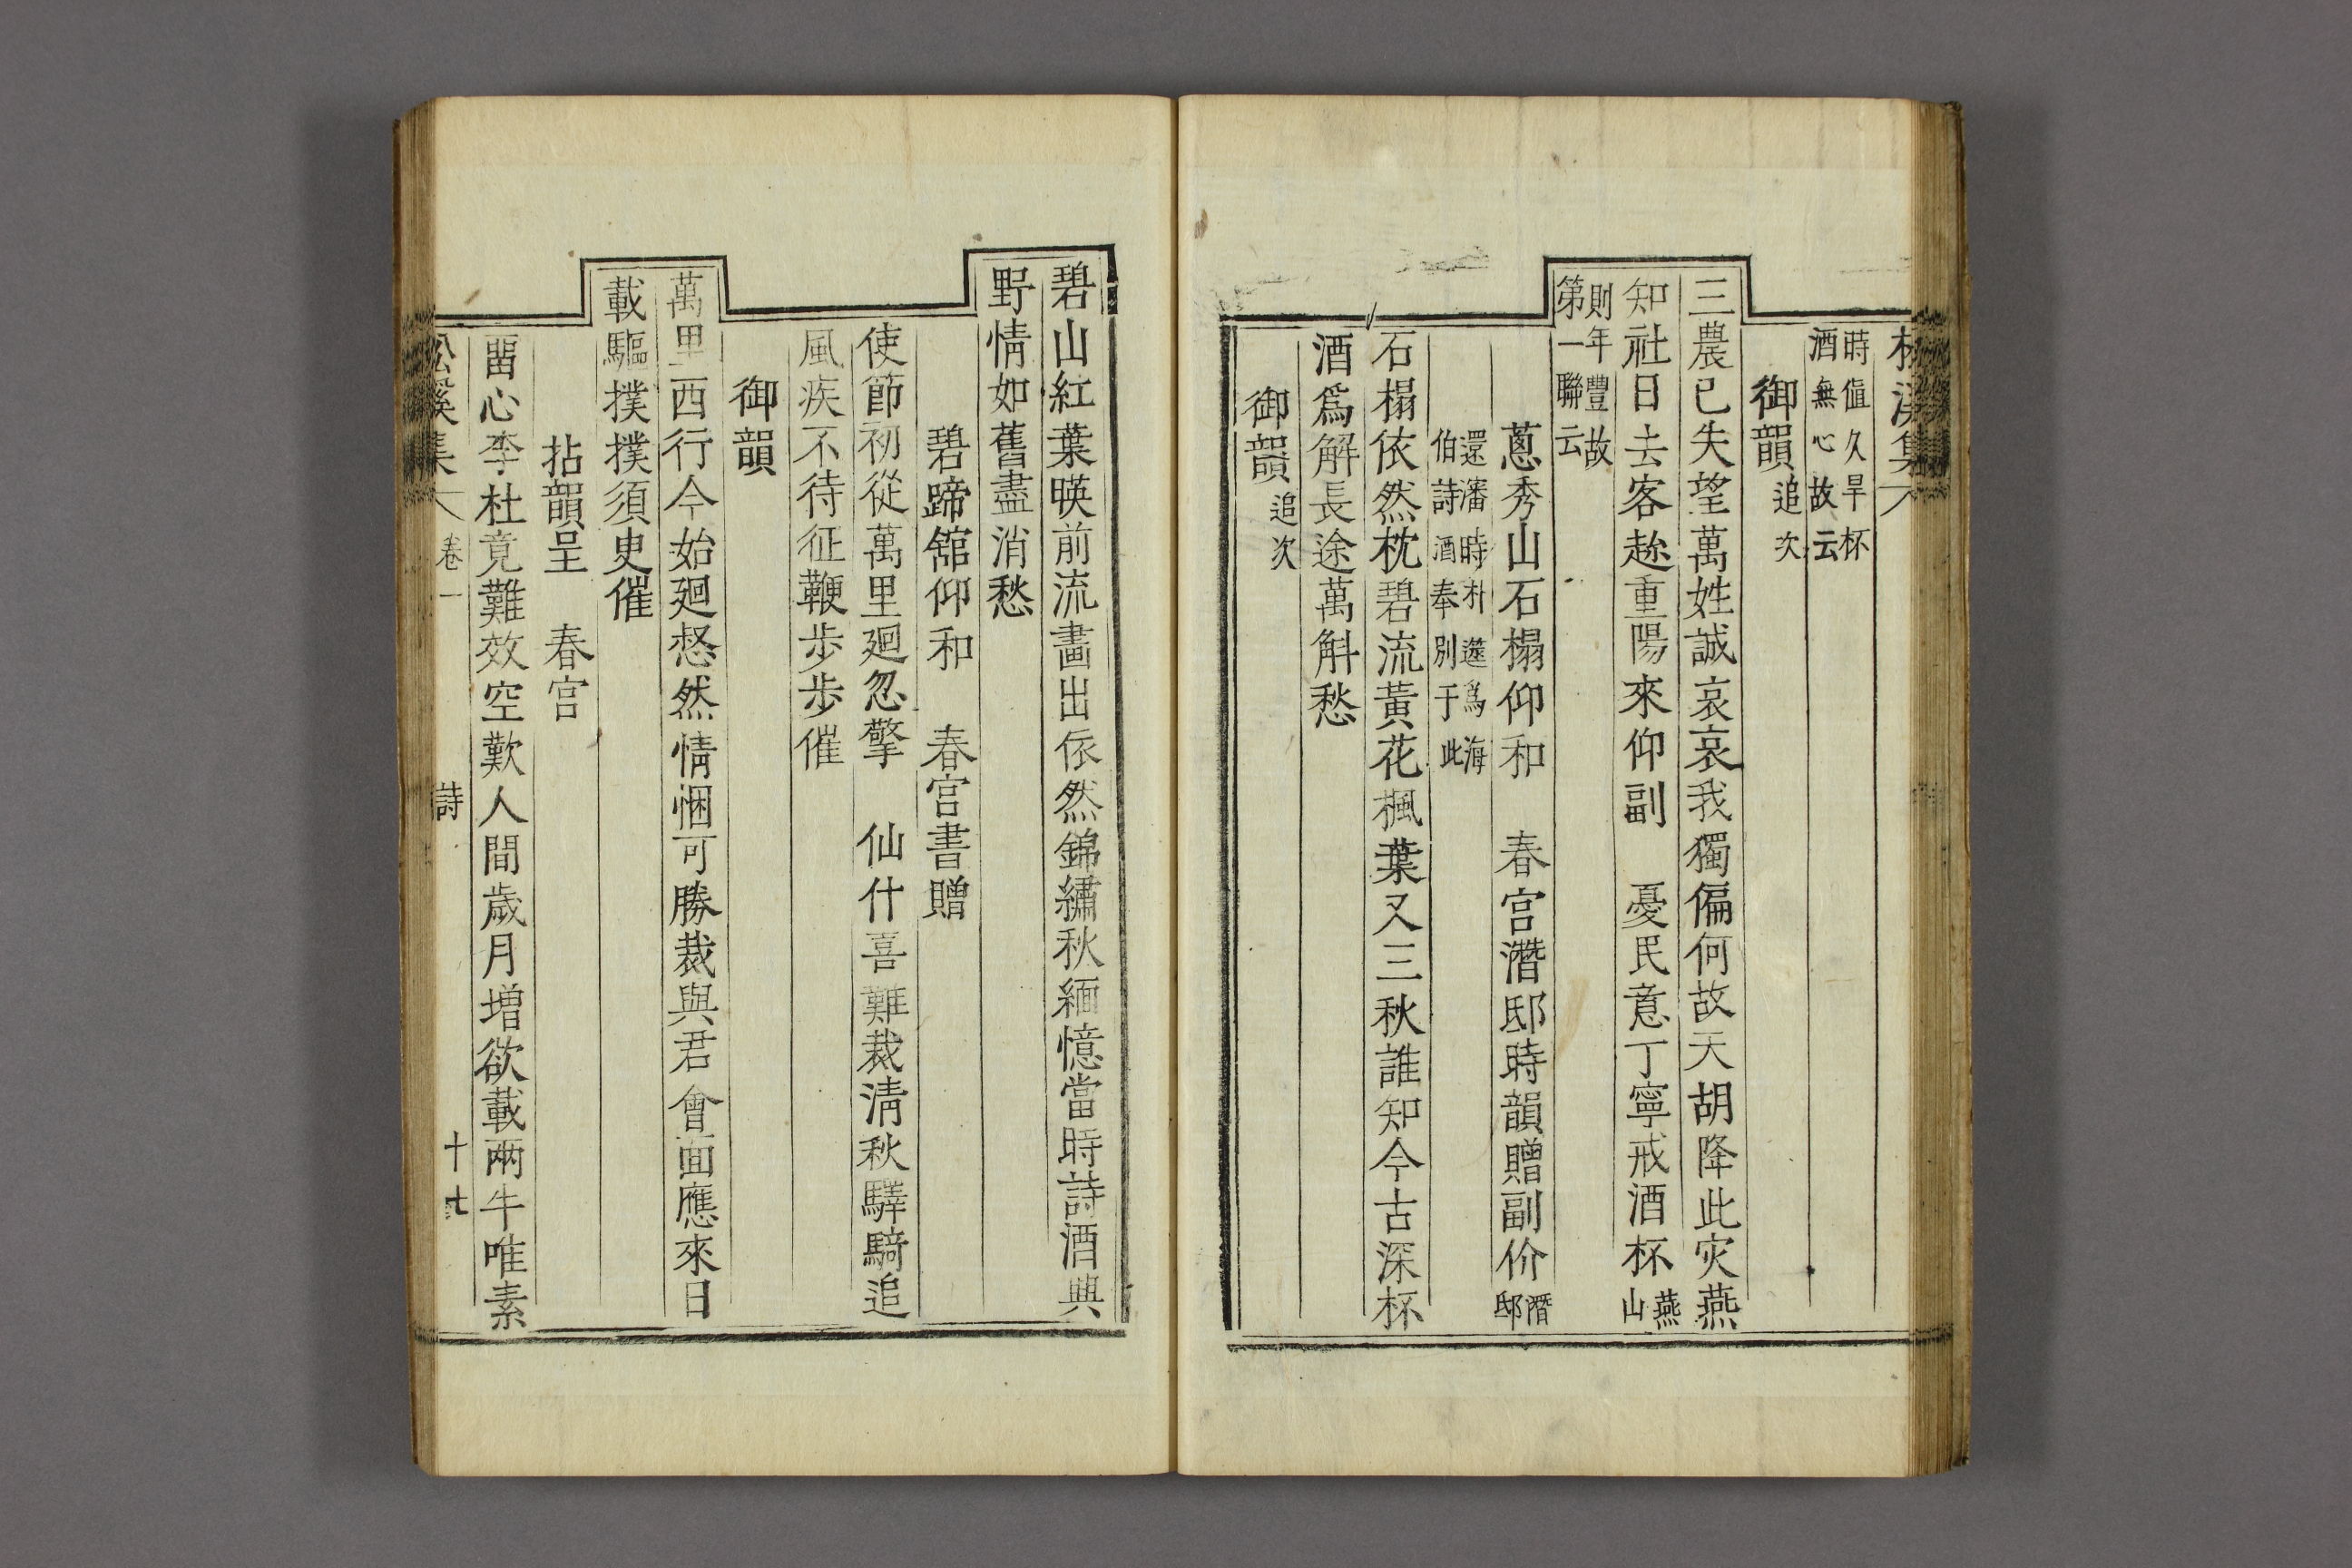 松溪集
時值久旱杯
酒無心故云
御韻追次
三農已失望萬姓誠哀哀我獨偏何故天胡降此灾燕
知社日去客趂重陽來仰副 憂民意丁寧戒酒杯燕山
則年豐故
第一聯云
蔥秀山石榻仰和 春宮潛邸時韻贈副价潛邸
還瀋時朴𥳑爲海
伯詩酒奉別于此
石榻依然枕碧流黃花楓葉又三秋誰知今古深杯
酒爲解長途萬斛愁
御韻追次
碧山紅葉暎前流畵出依然錦繡秋緬憶當時詩酒興
野情如舊盡消愁
碧蹄舘仰和 春宮書贈
使節初從萬里廻忽擎 仙什喜難裁淸秋驛騎追
風疾不待征鞭步步催
御韻
萬里西行今始廻惄然情悃可勝裁與君會面應來日
載驅撲撲須臾催
拈韻呈 春宮
畱心李杜竟難效空歎人間歲月增欲載兩牛唯素
松溪集 卷一 詩 十七